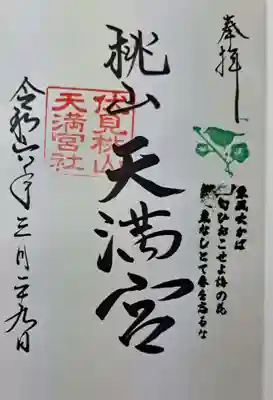 奉拝
東風ふかば
匂ひおこせよ梅の花
主なしとて春を忘るな
桃山天満宮
伏見桃山
天満宮社
令和六年三月二十九日